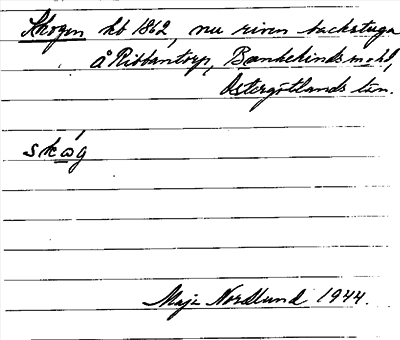 Skogen hb 1862, nu riven backstuga
å Ribbantorp, Bankekinds md,
Östergötlands län.
skωg
Maja Nordlund 1944.